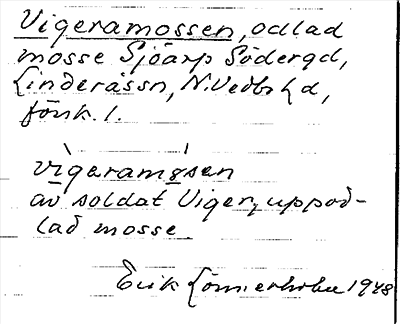 Vigeramossen, odlad
mosse Sjöarp Södergd,
Linderåssn, N. Vedbo hd,
Jönk. l.
vìgeramósen
av soldat Viger, uppod-
lad mosse
Erik Lönnerholm 1948